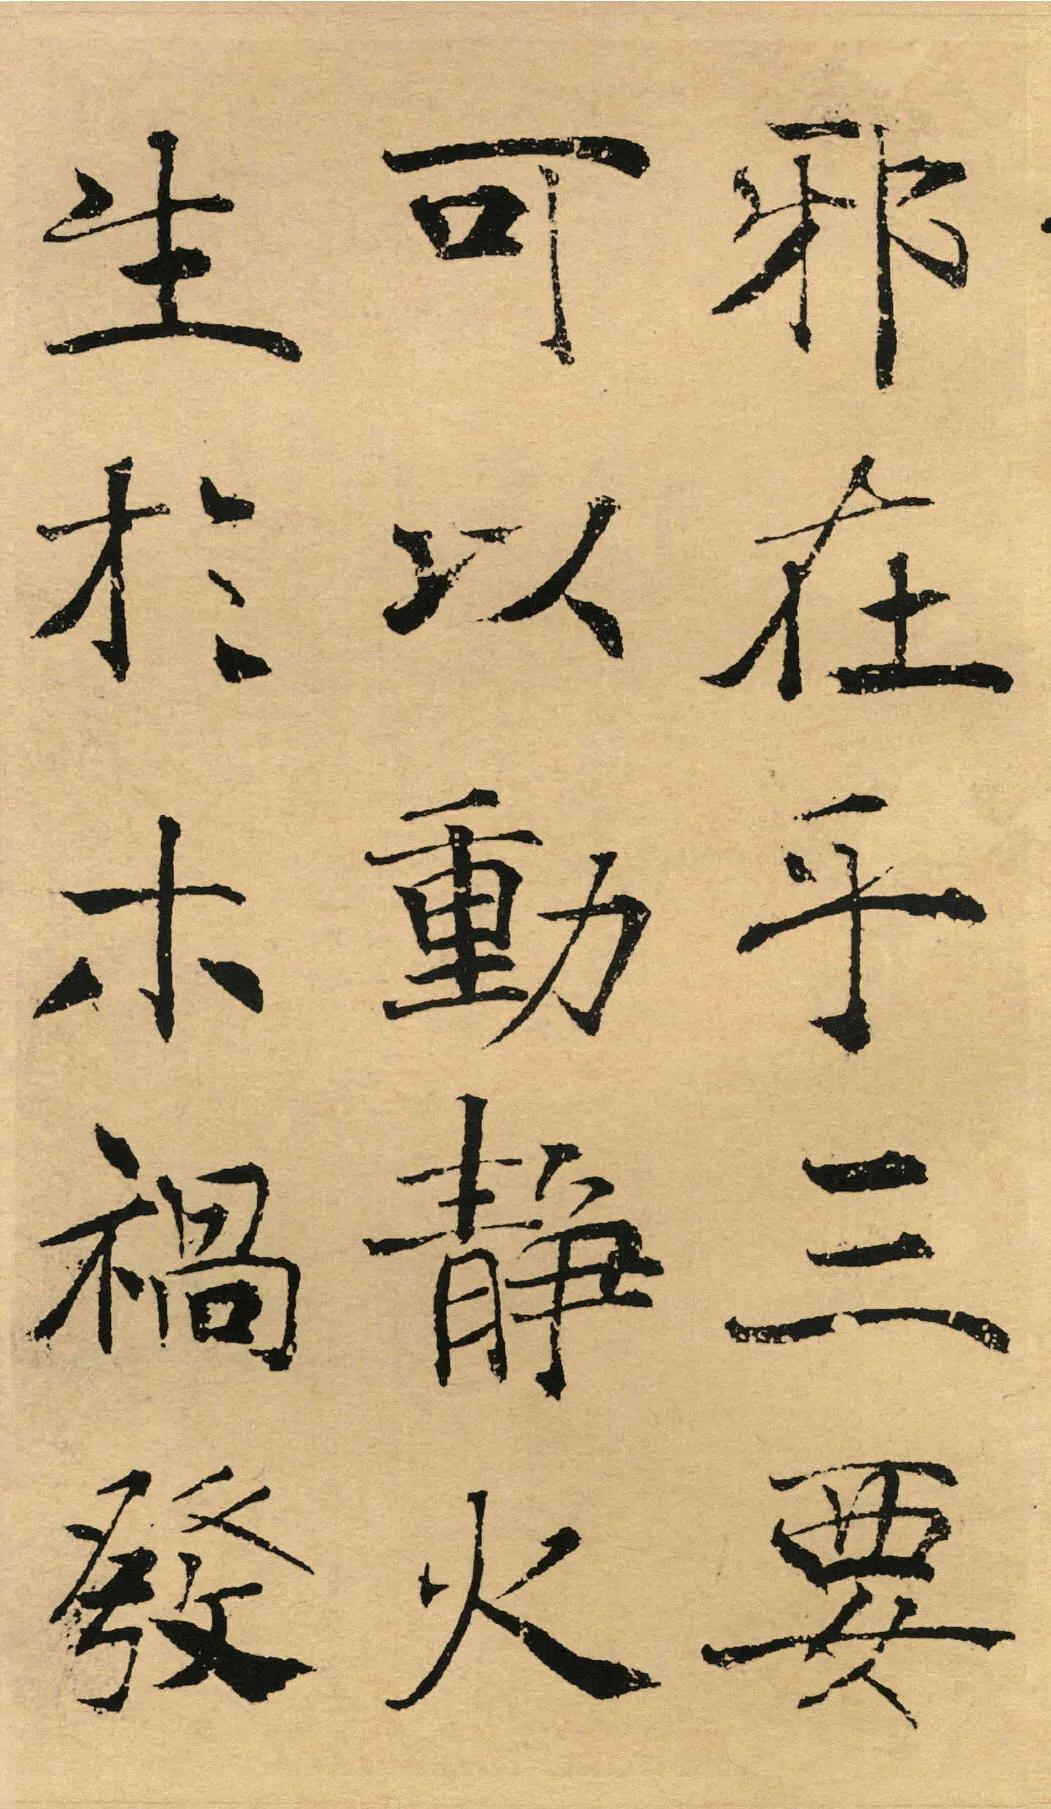 邪在乎三要
可以動静火
生於木禍發